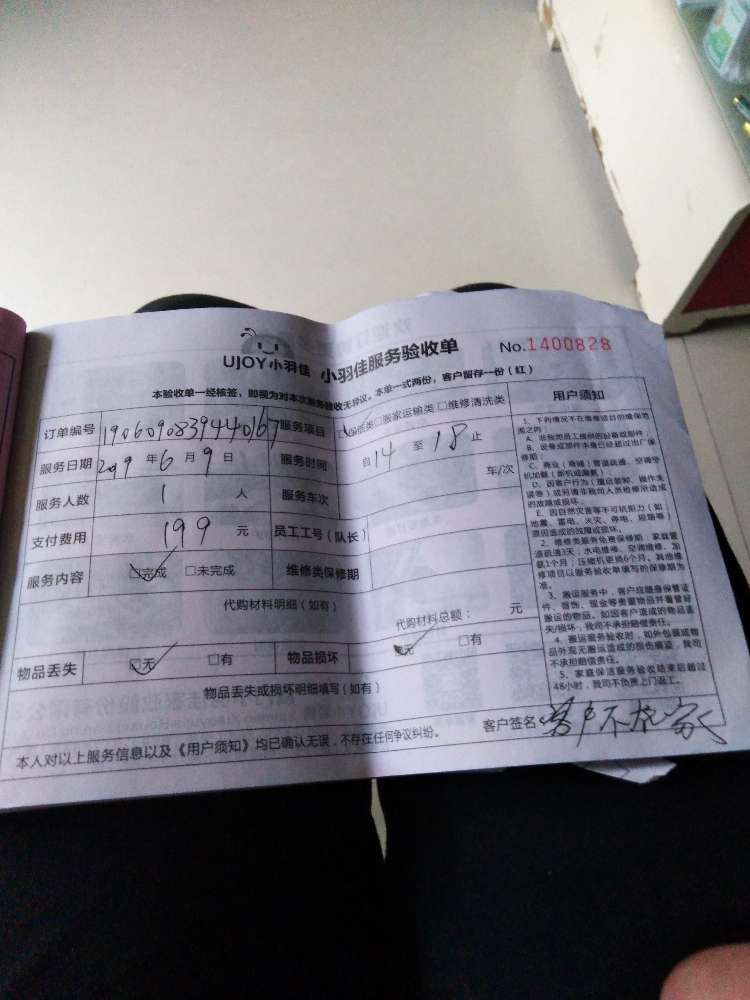 UJOY小羽佳 小羽佳服务验收单 No.1400828
本验收单一经核签，即视为对本次服务验收无异议。本单一式两份，客户留存一份（红）
订单编号 1906090839440167 服务项目 保洁类 □搬家运输类 □维修清洗类
服务日期 2019 年 6 月 9 日 服务时间 自 14 至 18 止
服务人数 1 人 服务车次 车/次
支付费用 199 元 员工工号（队长）
服务内容 ☑完成 □未完成 维修类保修期
代购材料明细（如有） 代购材料总额： 元
物品丢失 ☑无 □有 物品损坏 ☑无 □有
物品丢失或损坏明细填写（如有）
本人对以上服务信息以及《用户须知》均已确认无误，不存在任何争议纠纷。 客户签名 客户不在家
用户须知
1、下列情况不在维修项目的维保范围之内
A、非我司员工提供的设备或部件；
B、设备或部件本身已经超过出厂保修期
C、商业（商铺）管道疏通、空调分机加氨（新机或漏氨）
D、因客户行为（擅自装卸、操作失误等）或另请非我司人员检修所造成的故障或损坏。
E、因自然灾害等不可抗力（如地震、雷电、火灾、停电、短路等）原因造成的故障或损坏。
2、维修类服务免费保修期：家庭管道疏通3天；水电维修、空调维修、加氨1个月；压缩机更换6个月。其他维修项目以服务验收单填写的保修期为准。
3、搬运服务中，客户应随身保管证件、首饰、现金等贵重物品并看管好搬运的物品。如因客户造成的物品丢失/损坏，我司不承担赔偿责任。
4、搬运服务验收时，如外包装或物品外观无搬运造成的损伤痕迹，我司不承担赔偿责任。
5、家庭保洁服务验收结束后超过48小时，我司不负责上门返工。